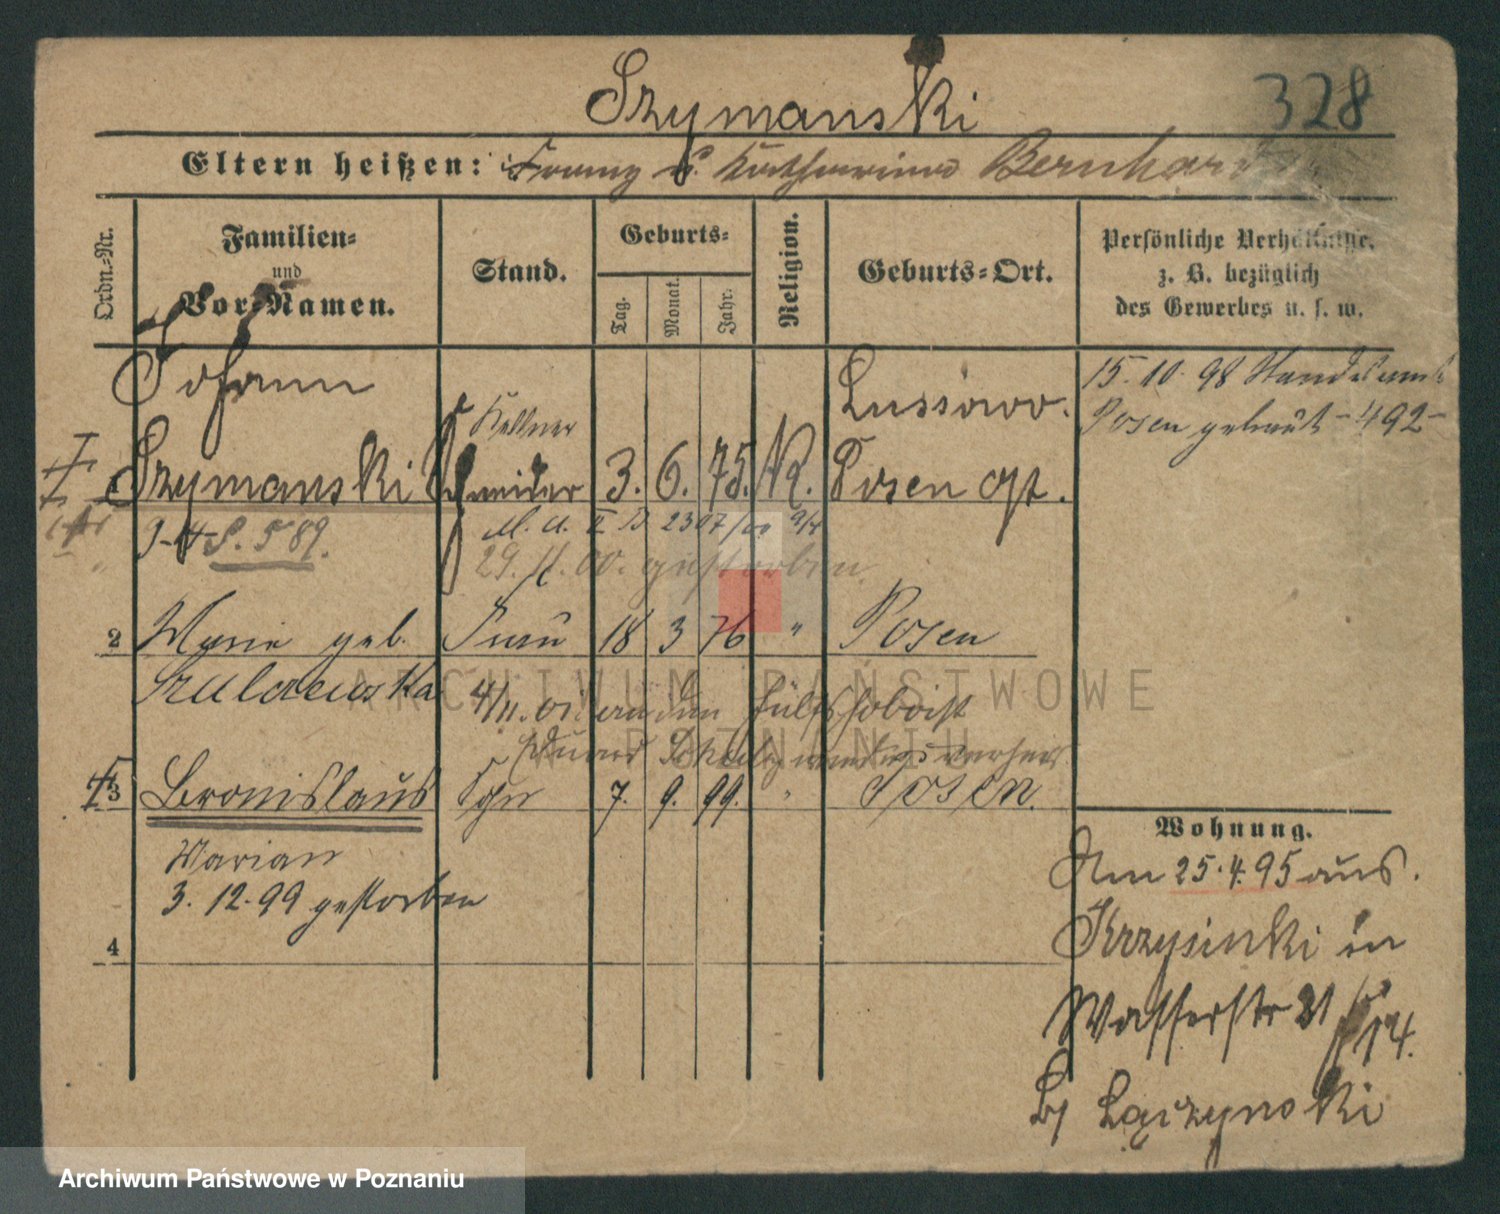 Szymanski
328
Eltern heißen: Franz u. Katharina Bernhard
Ordn.-Nr.
Familien-
und
Vor-Namen.
Stand.
Geburts-
Tag.
Monat.
Jahr.
Religion.
Geburts-Ort.
Persönliche Verhältnisse,
z. B. bezüglich
des Gewerbes u. s. w.
Johann
Szymanski
Kellner
Schneider
3. 6. 75. K.
Lussowo.
Posen
15. 10. 98 Standesamt
Posen getraut - 492 -
29. 11. 00. gestorben
2 Marie geb. Frau 18 3 76 " Posen
4/11. 01 an den
3 Bronislaus Sohn 7. 9. 99. " Posen.
Marian
3. 12. 99 gestorben
4
Wohnung.
Am 25. 4. 95 aus.
Krzysinki in
Wasserstr 21 14.
ARCHIWUM PAŃSTWOWE
W POZNANIU
Archiwum Państwowe w Poznaniu